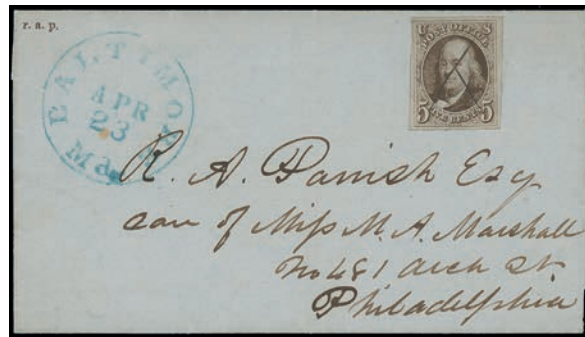 r. a. p.
BALTIMORE
APR
23
Md.
U S
POST OFFICE
5 FIVE CENTS 5
R. A. Parrish Esq
care of Miss M. A. Marshall
No 481 Arch St
Philadelphia